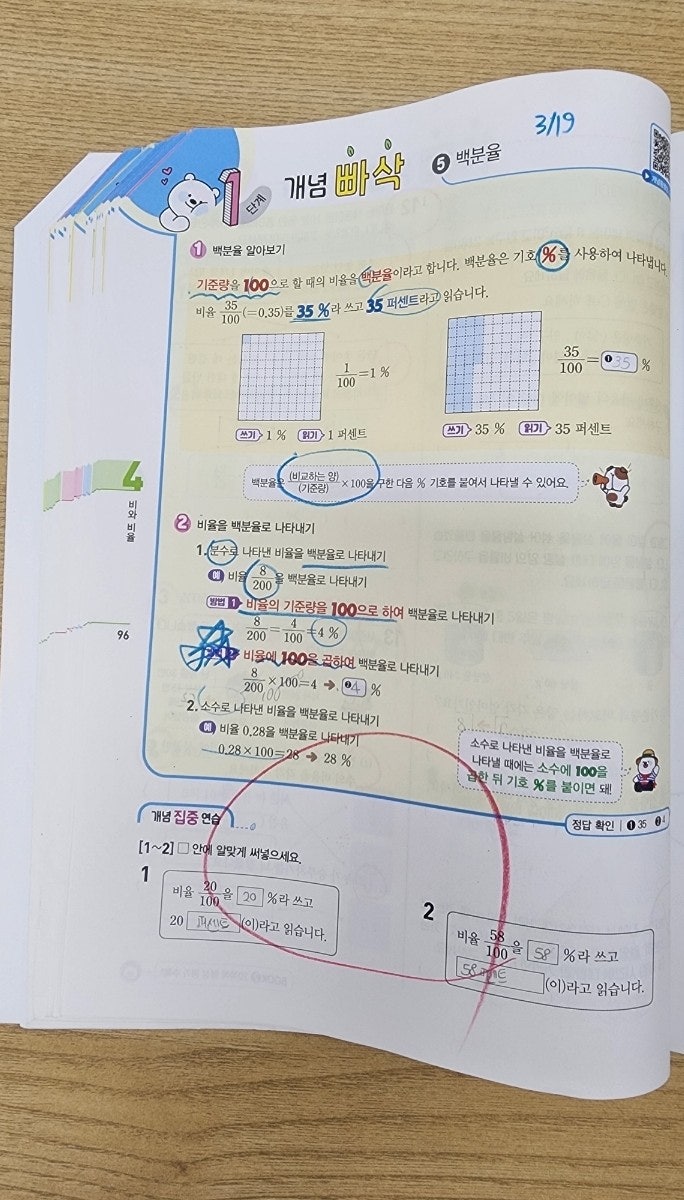 3/19
1단계 개념 빠삭 5 백분율
1 백분율 알아보기
기준량을 100으로 할 때의 비율을 백분율이라고 합니다. 백분율은 기호 %를 사용하여 나타냅니다.
비율 35/100(=0.35)를 35 %라 쓰고 35 퍼센트라고 읽습니다.
1/100=1 %
35/100= ❶35 %
쓰기 1 % 읽기 1 퍼센트
쓰기 35 % 읽기 35 퍼센트
백분율은 (비교하는 양)/(기준량)×100을 구한 다음 % 기호를 붙여서 나타낼 수 있어요.
4
비와 비율
96
2 비율을 백분율로 나타내기
1. 분수로 나타낸 비율을 백분율로 나타내기
예 비율 8/200을 백분율로 나타내기
방법 1 비율의 기준량을 100으로 하여 백분율로 나타내기
8/200=4/100=4 %
비율에 100을 곱하여 백분율로 나타내기
8/200×100=4 ➔ ❷4 %
2. 소수로 나타낸 비율을 백분율로 나타내기
예 비율 0.28을 백분율로 나타내기
0.28×100=28 ➔ 28 %
소수로 나타낸 비율을 백분율로
나타낼 때에는 소수에 100을
곱한 뒤 기호 %를 붙이면 돼!
정답 확인 | ❶ 35 ❷ 4
개념 집중 연습
[1~2] □ 안에 알맞게 써넣으세요.
1
비율 20/100을 20 %라 쓰고
20 퍼센트 (이)라고 읽습니다.
2
비율 58/100을 58 %라 쓰고
58퍼센트 (이)라고 읽습니다.